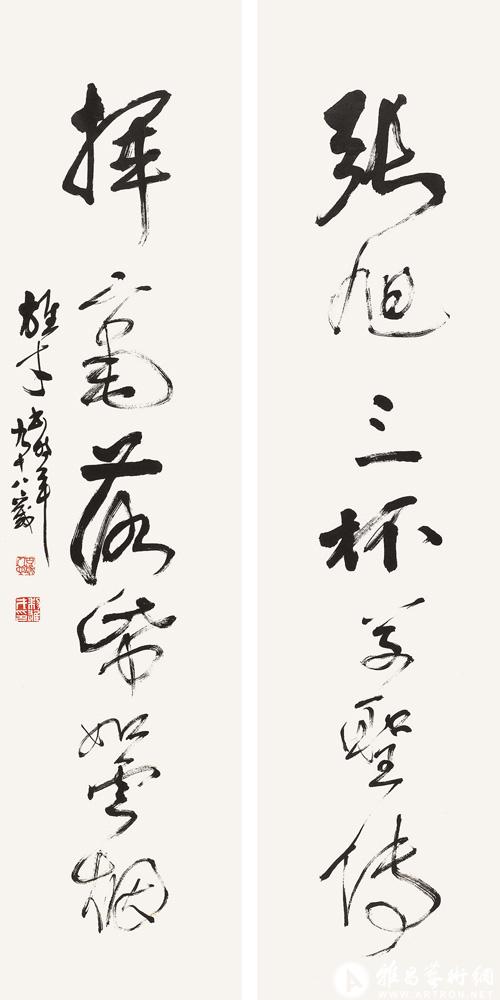 張旭三杯草聖傳
揮毫落紙如雲烟
雄才書時年九十八歲
雅昌藝術網
WWW.ARTRON.NET